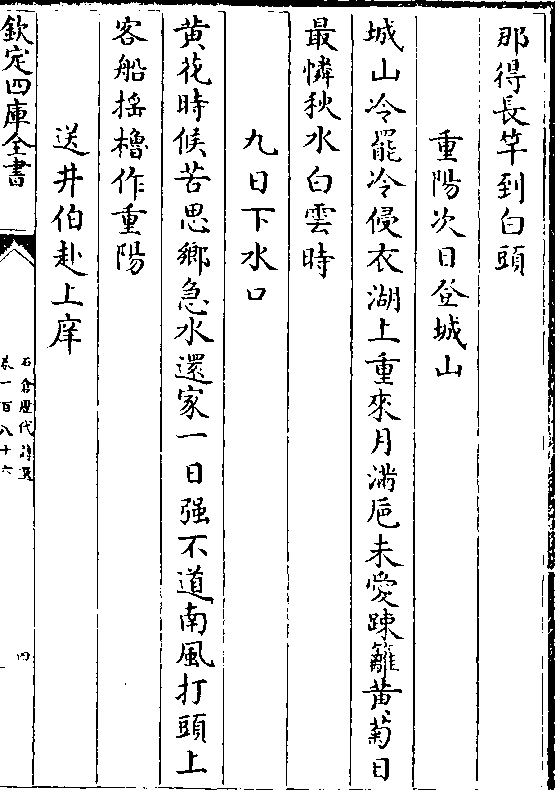 那得長竿到白頭
重陽次日登城山
城山冷罷冷侵衣湖上重來月滿巵未愛踈籬黄菊日
最憐秋水白雲時
九日下水口
黄花時候苦思鄉急水還家一日强不道南風打頭上
客船摇櫓作重陽
送井伯赴上庠
欽定四庫全書
石倉歷代詩選
卷一百八十六
四